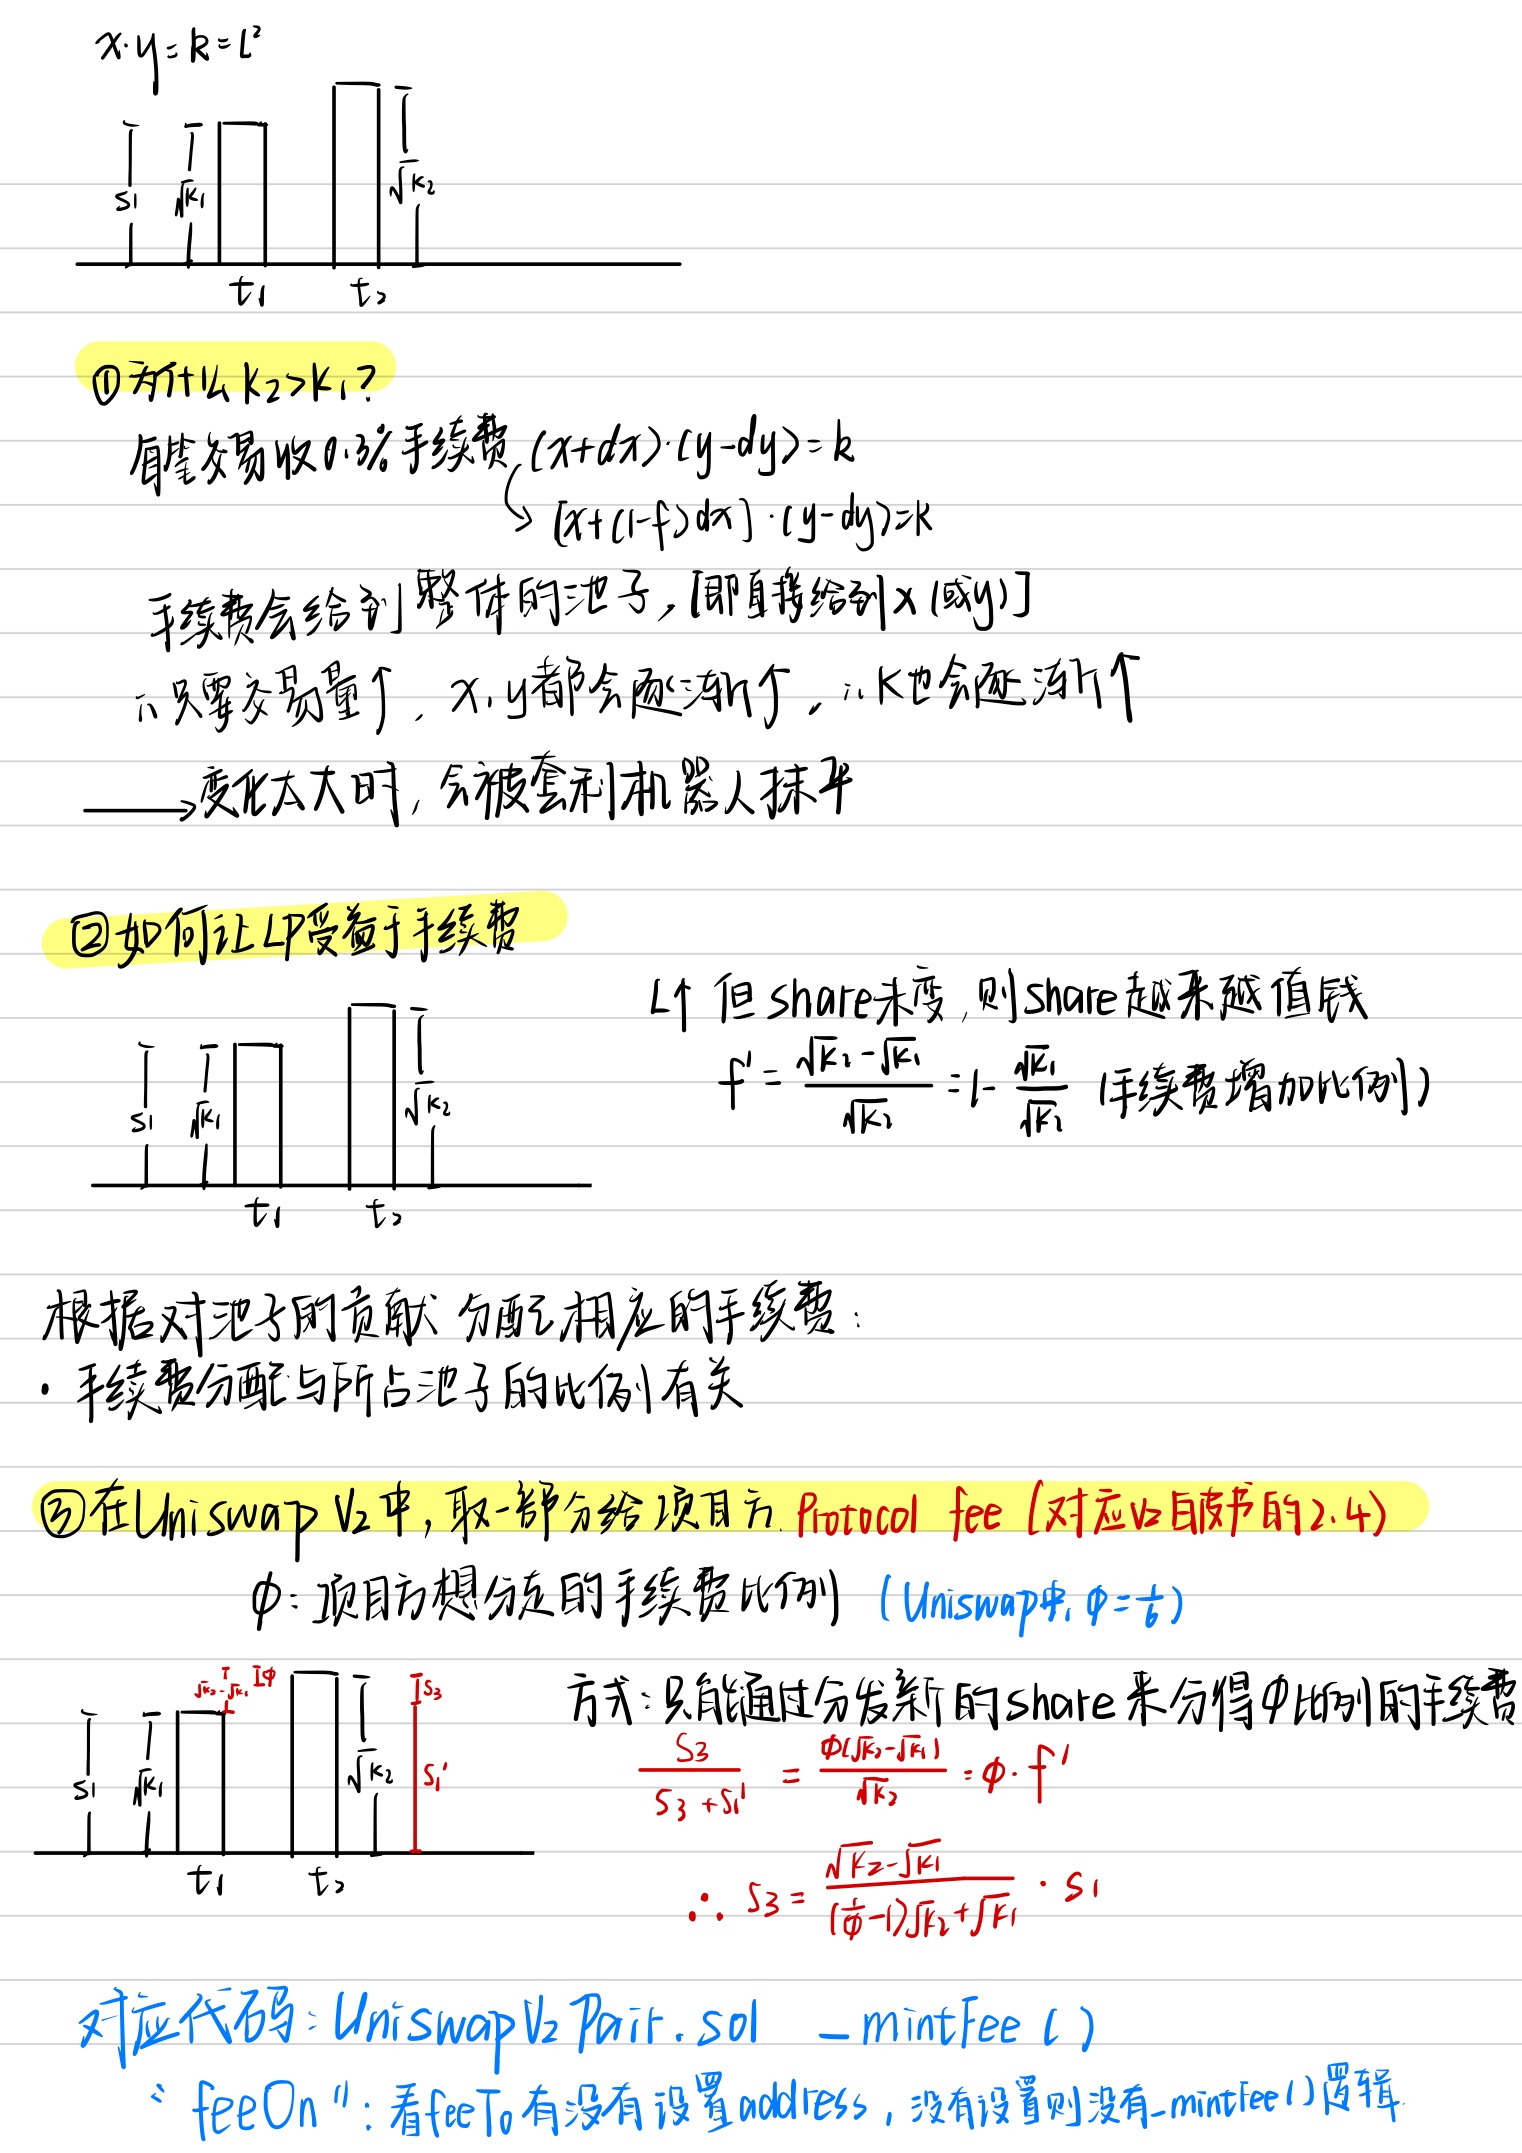 x·y=k=L²
S1 √K1 √K2
t1 t2
①为什么K2>K1?
每笔交易收0.3%手续费 (x+dx)·(y-dy)=k
[x+(1-f)dx]·(y-dy)=k
手续费会给到整体的池子,[即直接给到x(或y)]
∴只要交易量↑, x,y都会逐渐↑, ∴K也会逐渐↑
→变化太大时,会被套利机器人抹平
②如何让LP受益于手续费
L↑ 但share未变,则share越来越值钱
f' = (√K2-√K1)/√K2 = 1- √K1/√K2 (手续费增加比例)
S1 √K1 √K2
t1 t2
根据对池子的贡献 分配相应的手续费:
· 手续费分配与所占池子的比例有关
③在Uniswap V2中,取一部分给项目方. Protocol fee (对应V2白皮书的2.4)
φ: 项目方想分走的手续费比例 (Uniswap中, φ=1/6)
√K2-√K1 φ S3
S1 √K1 √K2 S1'
t1 t2
方式:只能通过分发新的share来分得φ比例的手续费
S3/(S3+S1') = φ(√K2-√K1)/√K2 = φ·f'
∴ S3 = (√K2-√K1)/((1/φ-1)√K2+√K1) · S1
对应代码: UniswapV2Pair.sol _mintFee()
"feeOn": 看feeTo有没有设置address,没有设置则没有_mintFee()逻辑.